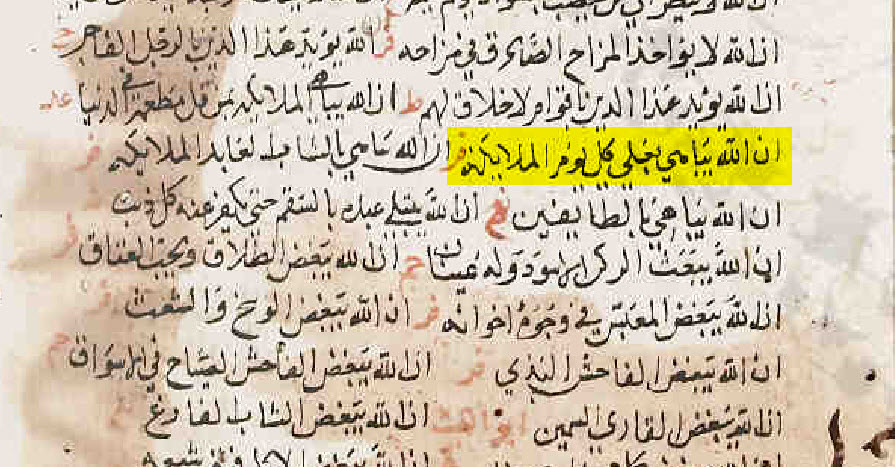 ان الله لا يؤاخذ المزاح الصادق في مزاحه فر ان الله يؤيد هذا الدين بالرجل الفاجر
ان الله يؤيد هذا الدين باقوام لا خلاق لهم ط ان الله يباهي الملائكة بمن قل مطعمه في الدنيا عد
ان الله يباهي بعلي كل يوم الملايكة فر ان الله يباهي بالشاب العابد الملايكة فر
ان الله يباهي بالطايفين ان الله يبتلي عبده بالسقم حتى يكفر عنه كل ذنب
ان الله يبعث الركن الاسود وله عينان ان الله يبغض الطلاق ويحب العتاق
ان الله يبغض المعبس في وجوه اخوانه فر ان الله يبغض الوسخ والشعث
ان الله يبغض الفاحش البذي ان الله يبغض الفاحش الصياح في الاسواق
ان الله يبغض القاري السمين ان الله يبغض الشاب الفارغ